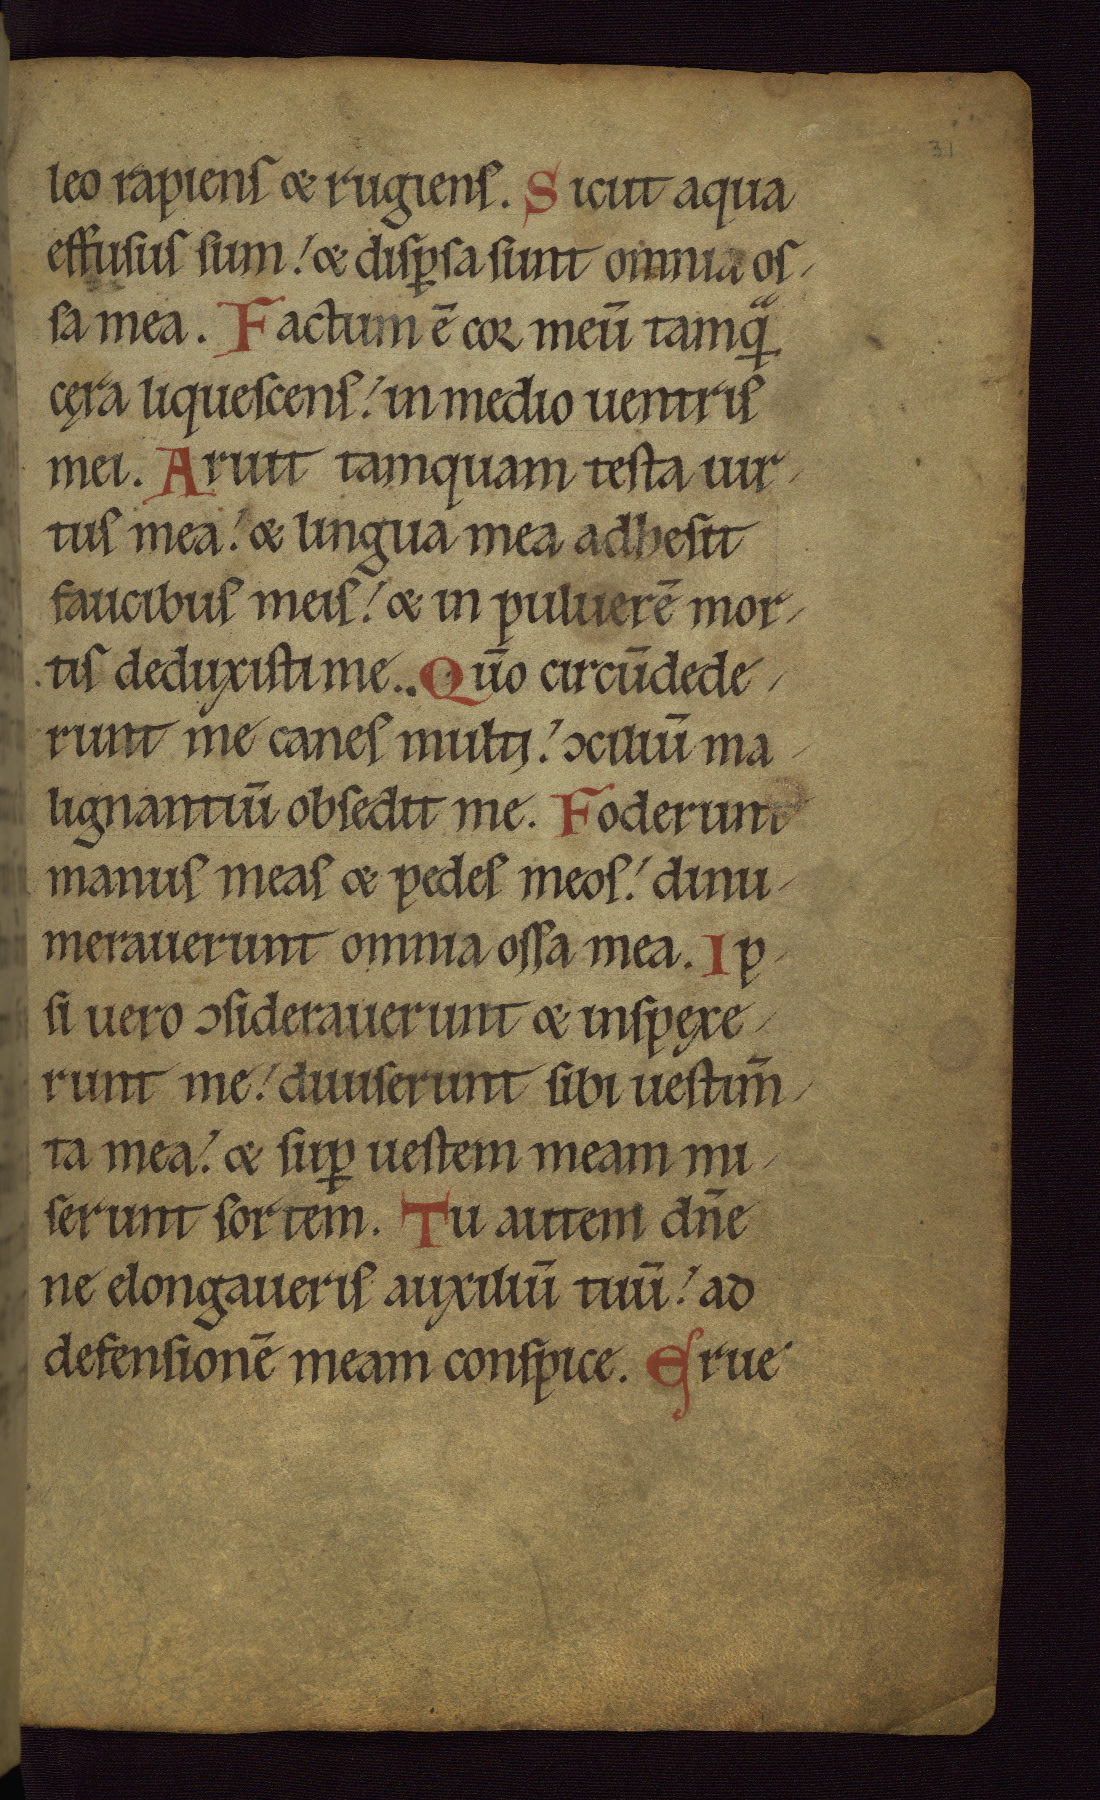 31
leo rapiens & rugiens. Sicut aqua
effusus sum! & disp̱sa sunt omnia os-
sa mea. Factum ē cor meū tamq̱ᵃ
cęra liquescens! in medio uentris
mei. Aruit tamquam testa uir-
tus mea! & lingua mea adhesit
faucibus meis! & in puluerē mor-
tis deduxisti me. Qūo circūdede-
runt me canes multi! ↄciliū ma-
lignantiū obsedit me. Foderunt
manus meas & pedes meos! dinu-
merauerunt omnia ossa mea. Ip-
si uero ↄsiderauerunt & inspexe-
runt me! diuiserunt sibi uestim̄-
ta mea! & sup̱ uestem meam mi-
serunt sortem. Tu autem dn̄e
ne elongaueris auxiliū tuū! ad
defensionē meam conspice. Erue